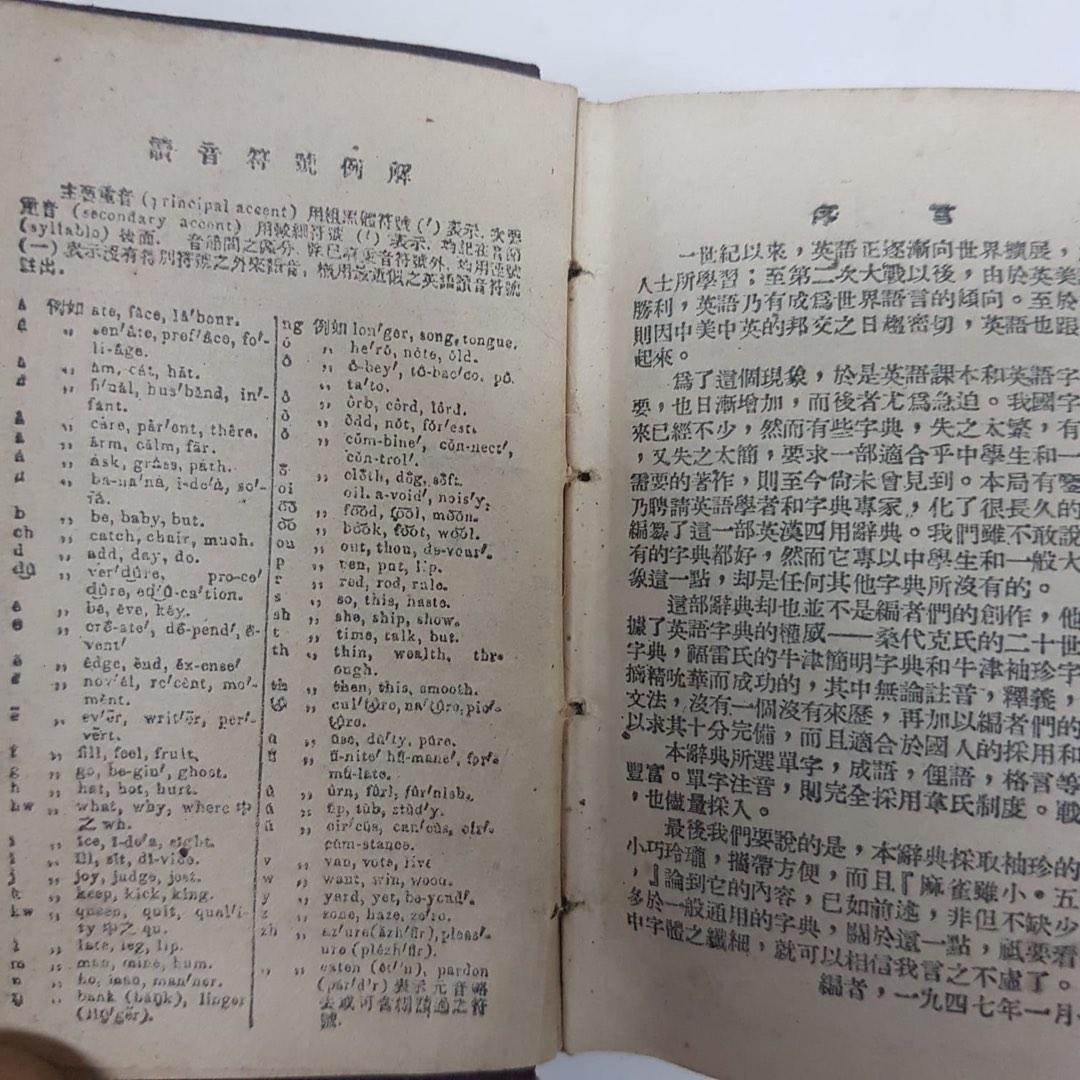 讀音符號例解
主要重音 (principal accent) 用粗黑體符號 (′) 表示. 次要
重音 (secondary accent) 用較細符號 (′) 表示. 均記在音節
(syllable) 後面. 音節間之區分, 除已有重音符號外, 均用連號
(-) 表示沒有特別符號之外來語音, 概用最近似之英語讀音符號
註出.
ā 例如 ate, fāce, lā′bour.
,, sen′āte, pref′āce, fo′-
li-āge.
,, ăm, căt, hăt.
,, fī′năl, hus′bănd, in′-
fănt.
,, câre, pâr′ent, thêre.
,, ärm, cälm, fär.
,, ȧsk, grȧss, pȧth.
,, ba-na′na, i-de′a, so′-
fa.
b ,, be, baby, but.
ch ,, catch, chair, much.
d ,, add, day, do.
,, ver′dure, pro-ce′
dure, ed′u-ca′tion.
ē ,, bē, ēve, kēy.
,, crē-ate′, dē-pend′, ē-
vent′
ĕ ,, ĕdge, ĕnd, ĕx-cuse′
,, nov′el, re′cent, mo′-
ment.
,, ev′ẽr, writ′ẽr, per′-
vẽrt.
f ,, fill, feel, fruit.
g ,, go, be-gin′, ghost.
h ,, hat, hot, hurt.
hw ,, what, why, where 中
之 wh.
ī ,, īce, ī-de′a, sīght.
ĭ ,, ĭll, sĭt, dĭ-vide.
j ,, joy, judge, jest.
k ,, keep, kick, king.
kw ,, queen, quit, qual′i-
ty 中之 qu.
l ,, late, leg, lip.
m ,, man, mine, hum.
n ,, no, man′ner.
,, bank (băŋk), linger
(lĭŋ′gẽr).
ng 例如 lon′ger, song, tongue.
ō ,, he′rō, nōte, ōld.
,, ō-bey′, tō-bac′co, pō-
ta′to.
ô ,, ôrb, côrd, lôrd.
ŏ ,, ŏdd, nŏt, fŏr′est.
,, cŏm-bine′, cŏn-nect′,
cŏn-trol′.
,, clŏth, dŏg, sŏft.
oi ,, oil, a-void′, nois′y.
o͞o ,, fo͞od, fo͞ol, mo͞on.
o͝o ,, bo͝ok, fo͝ot, wo͝ol.
ou ,, out, thou, de-vour′.
p ,, pen, put, lip.
r ,, red, rod, rule.
s ,, so, this, haste.
sh ,, she, ship, show.
t ,, time, talk, but.
th ,, thin, wealth, thr-
ough.
th ,, then, this, smooth.
,, cul′ture, na′ture, pic′-
ture.
ū ,, ūse, dū′ty, pūre.
,, ū-nite′ hū-mane′,
mū-late.
û ,, ûrn, fûrl, fûr′nish.
ŭ ,, ŭp, tŭb, stŭd′y.
,, cir′cŭs, cau′cŭs, cir′-
cŭm-stance.
v ,, van, vote, live
w ,, want, win, wood.
y ,, yard, yet, be-yond′.
z ,, zone, haze, ze′ro.
zh ,, az′ure(ăzh′ẽr), pleas′-
ure (plĕzh′ẽr).
,, eaten (ēt′'n), pardon
(pär′d'n) 表示元音略
去或可含糊讀過之符
號.
序言
一世紀以來，英語正逐漸向世界擴展，
人士所學習；至第二次大戰以後，由於英美
勝利，英語乃有成爲世界語言的傾向。至於
則因中美中英的邦交之日趨密切，英語也跟
起來。
爲了這個現象，於是英語課本和英語字
要，也日漸增加，而後者尤爲急迫。我國字
來已經不少，然而有些字典，失之太繁，有
，又失之太簡，要求一部適合乎中學生和一
需要的著作，則至今尙未曾見到。本局有鑒
乃聘請英語學者和字典專家，化了很長久的
編纂了這一部英漢四用辭典。我們雖不敢說
有的字典都好，然而它專以中學生和一般大
象這一點，却是任何其他字典所沒有的。
這部辭典却也並不是編者們的創作，他
據了英語字典的權威——桑代克氏的二十世
字典，福雷氏的牛津簡明字典和牛津袖珍字
摘精吮華而成功的，其中無論註音，釋義，
文法，沒有一個沒有來歷，再加以編者們的
以求其十分完備，而且適合於國人的採用和
本辭典所選單字，成語，俚語，格言等
豐富。單字注音，則完全採用韋氏制度。戰
，也儘量採入。
最後我們要說的是，本辭典採取袖珍的
小巧玲瓏，攜帶方便，而且『麻雀雖小。五
，』論到它的內容，已如前述，非但不缺少
多於一般通用的字典，關於這一點，祇要看
中字體之纖細，就可以相信我言之不虛了。
編者，一九四七年一月